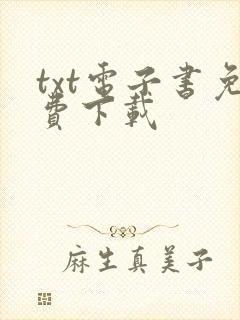 txt電子書免
費下載
麻生真美子